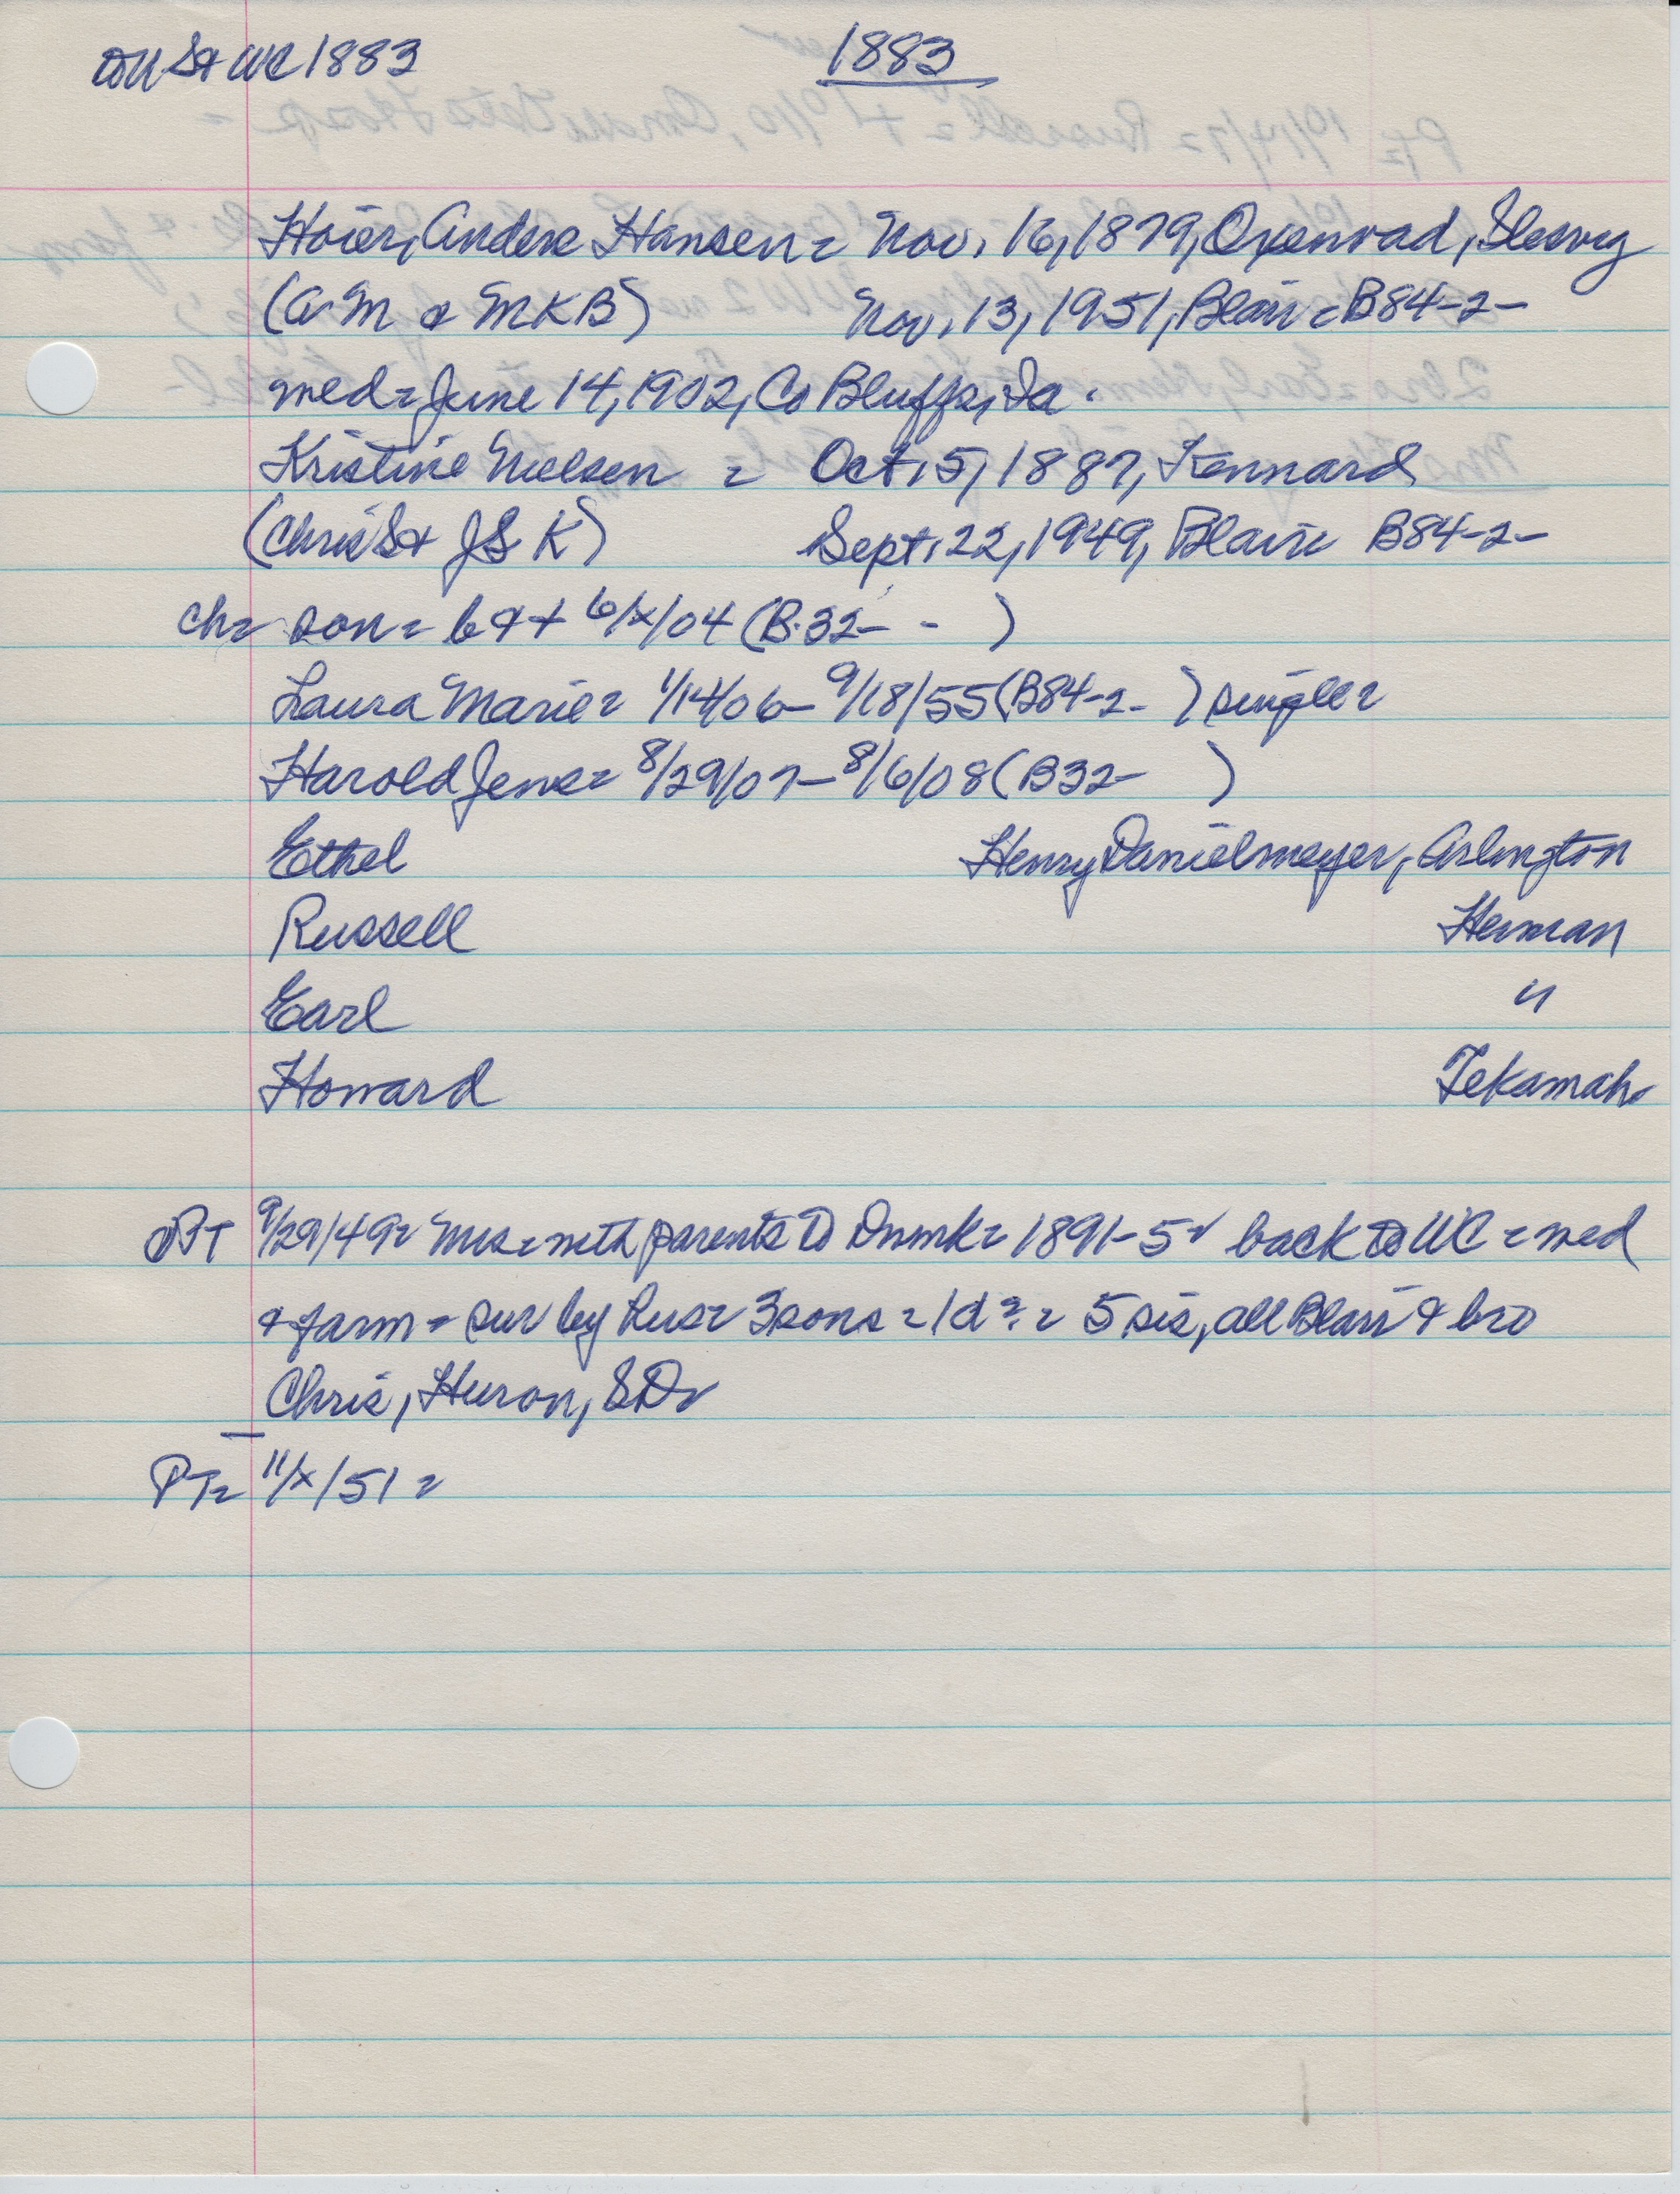 to US & WC 1883 1883
Hoier, Anders Hansen = Nov. 16, 1879, Opennrad, Slesvig
(A M & M K B) Nov. 13, 1951, Blair = B84-2-
med = June 14, 1902, Co Bluffs, Ia.
Kristine Nielsen = Oct. 5, 1887, Kennard
(Chris S & J S K) Sept. 22, 1949, Blair = B84-2-
ch = son = b & + 6/x/04 (B.32- - )
Laura Marie = 1/14/06 - 9/18/55 (B84-2- ) single =
Harold Jens = 8/29/07 - 8/6/08 (B32- )
Ethel Henry Danielmeyer, Arlington
Russell Herman
Earl "
Howard Tekamah
PT 9/29/49 = Mrs = with parents to Dnmk = 1891-5 = back to WC = med
& farm = sur by hus = 3 sons = 1 d ? = 5 sis, all Blair & bro
Chris, Huron, SD =
PT = 11/x/51 =